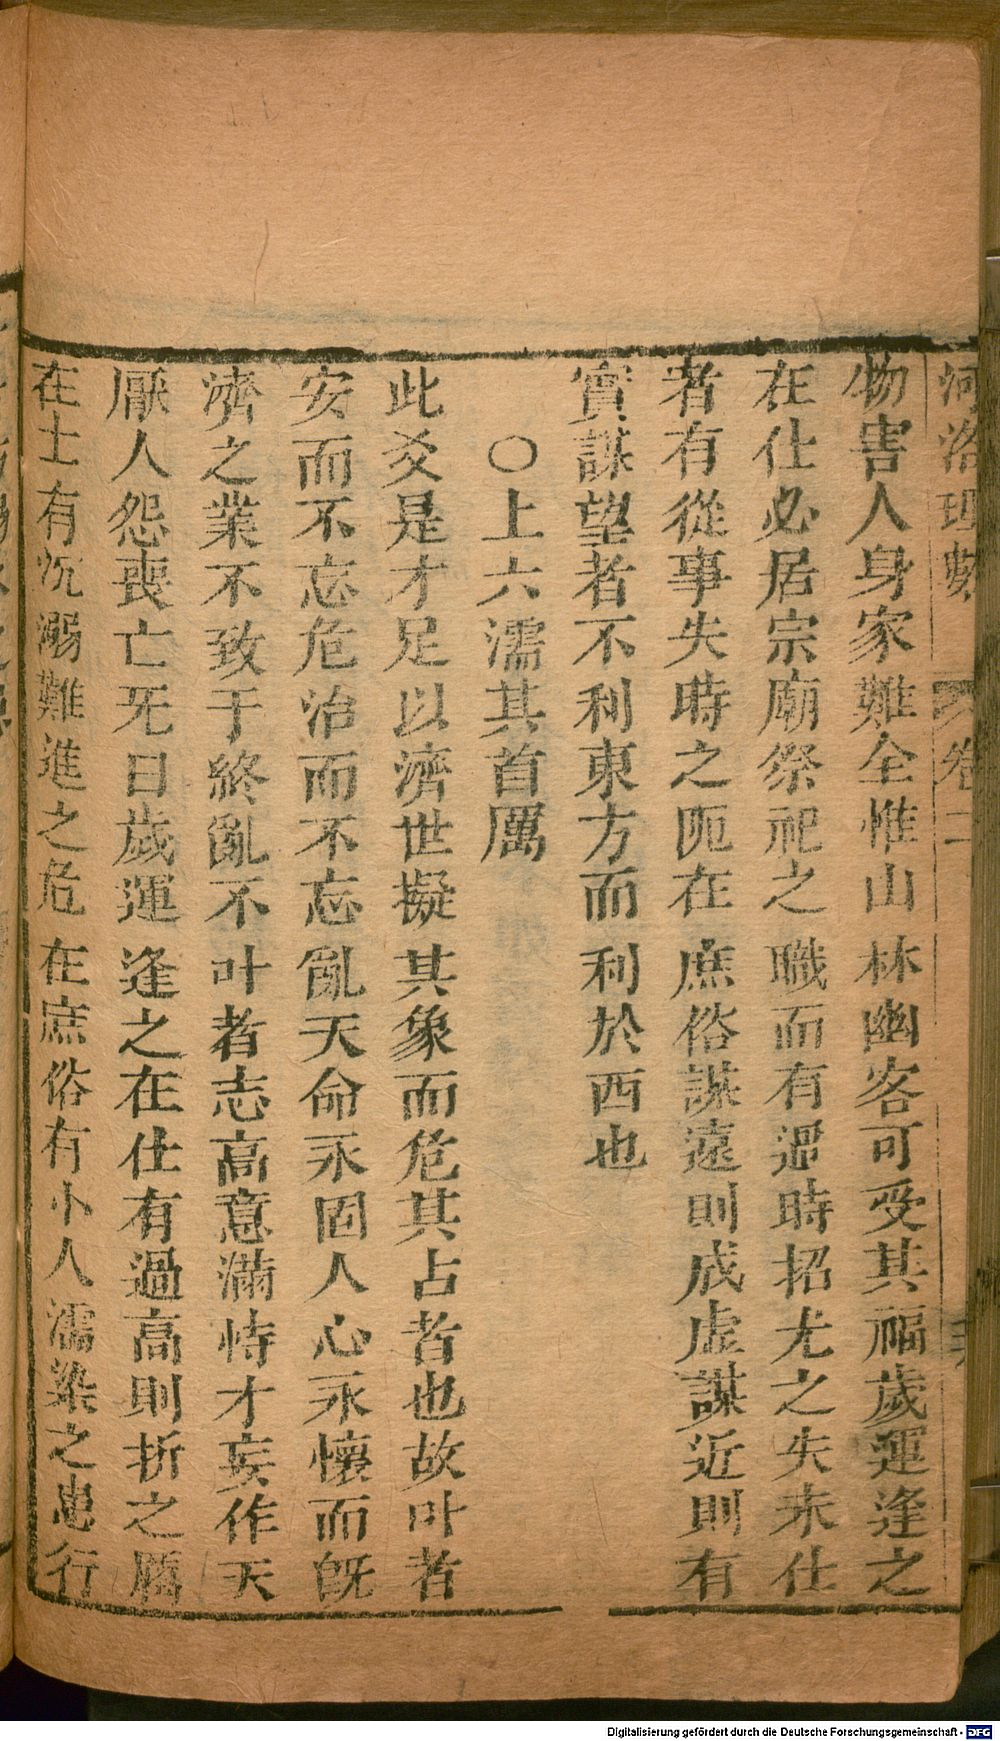 河洛理數 卷二
物害人身家難全惟山林幽客可受其福歲運逢之
在仕必居宗廟祭祀之職而有過時招尤之失未仕
者有從事失時之阨在庶俗謀遠則成虛謀近則有
實謀望者不利東方而利於西也
○上六濡其首厲
此爻是才足以濟世擬其象而危其占者也故叶者
安而不忘危治而不忘亂天命永固人心永懷而旣
濟之業不致于終亂不叶者志高意滿恃才妄作天
厭人怨喪亡旡日歲運逢之在仕有過高則折之
在士有沉溺難進之危在庶俗有小人濡染之患行
Digitalisierung gefördert durch die Deutsche Forschungsgemeinschaft - DFG